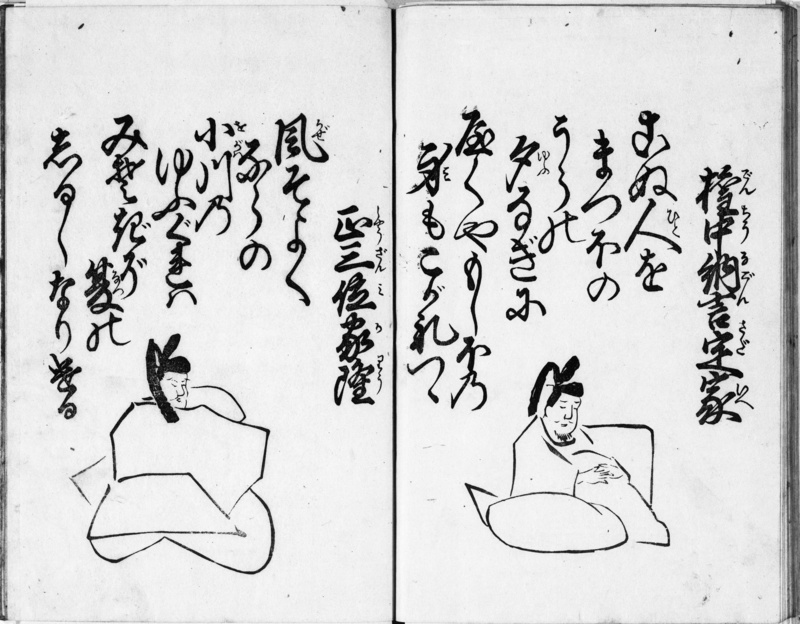 権中納言定家
こぬ人を
まつほの
うらの
夕なぎに
やくやもしほの
身もこがれつゝ
正三位家隆
風そよぐ
ならの
小川の
ゆふぐれは
みそぎぞ
夏の
しるしなりける